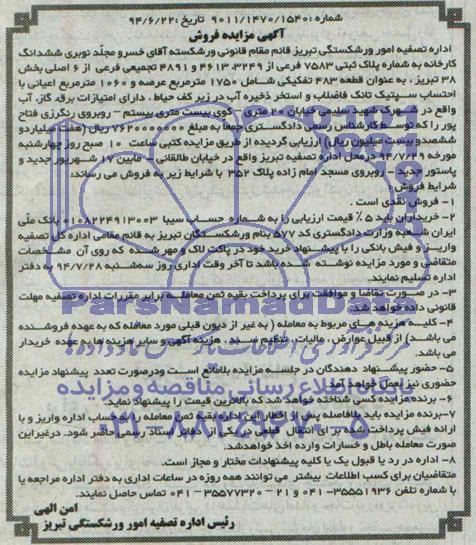 شماره: ۹۰۱۱/۱۴۷۰/۱۵۴۰ تاریخ: ۹۴/۶/۲۲
آگهی مزایده فروش
اداره تصفیه امور ورشکستگی تبریز قائم مقام قانونی ورشکسته آقای خسرو مجلّد نوبری ششدانگ
کارخانه به شماره پلاک ثبتی ۷۵۸۳ فرعی از ۳۲۴۹، ۴۶۱۳ و ۴۸۹۱ تجمیعی فرعی از ۶ اصلی بخش
۳۸ تبریز، به عنوان قطعه ۴۸۳ تفکیکی شامل ۱۷۵۰ مترمربع عرصه و ۱۰۶۰ مترمربع اعیانی با
احتساب سپتیک تانک فاضلاب و استخر ذخیره آب در زیر کف حیاط، دارای امتیازات برق، گاز، آب
واقع در شهرک شهید سلیمی خیابان ۲۰ متری - کوی بیست متری بیستم - روبروی رنگرزی فتاح
پور را که توسط کارشناس رسمی دادگستری جمعاً به مبلغ ۷۶۲۰۰۰۰۰۰۰ ریال (هفت میلیارد و
ششصد و بیست میلیون ریال) ارزیابی گردیده از طریق مزایده کتبی ساعت ۱۰ صبح روز چهارشنبه
مورخه ۹۴/۷/۲۹ درمحل اداره تصفیه تبریز واقع در خیابان طالقانی - مابین ۱۷ شهریور جدید و
پاستور جدید - روبروی مسجد امام زاده پلاک ۳۵۲ با شرایط زیر به فروش می رساند:
شرایط فروش
۱- فروش نقدی است.
۲- خریداران باید ۵٪ قیمت ارزیابی را به شماره حساب سیبا ۰۱۰۸۲۲۴۹۱۳۰۰۳ بانک ملی
ایران شعبه وزارت دادگستری کد ۵۷۷ بنام ورشکستگان تبریز به قائم مقامی اداره کل تصفیه
واریز و فیش بانکی را با پیشنهاد خرید خود در پاکت لاک و مهر شده که روی آن مشخصات
متقاضی و مورد مزایده نوشته شده باشد تا آخر وقت اداری روز سه شنبه ۹۴/۷/۲۸ به دفتر
اداره تسلیم نمایند.
۳- در صورت تقاضا و موافقت برای پرداخت بقیه ثمن معامله برابر مقررات اداره تصفیه مهلت
قانونی داده خواهد شد.
۴- کلیه هزینه های مربوط به معامله (به غیر از دیون قبلی مورد معامله که به عهده فروشنده
می باشد) از قبیل عوارض، مالیات، تنظیم سند، هزینه آگهی و سایر هزینه ها به عهده خریدار
می باشد.
۵- حضور پیشنهاد دهندگان در جلسه مزایده بلامانع است و درصورت تعدد پیشنهاد مزایده
حضوری نیز بعمل خواهد آمد.
۶- برنده مزایده کسی شناخته خواهد شد که بالاترین قیمت را پیشنهاد نماید.
۷- برنده مزایده باید بلافاصله پس از اخطار این اداره بقیه ثمن معامله را به حساب اداره واریز و با
ارائه فیش پرداخت شده برای انتقال قطعی در یکی از دفاتر اسناد رسمی حاضر شود. درغیراین
صورت معامله باطل و خسارات وارده اخذ خواهدشد.
۸- اداره در رد یا قبول یک یا کلیه پیشنهادات مختار و مجاز است.
متقاضیان برای کسب اطلاعات بیشتر می توانند همه روزه در ساعات اداری به دفتر اداره مراجعه یا
با شماره تلفن ۳۵۵۵۱۹۳۶-۰۴۱ و ۲۱ - ۳۵۵۷۷۳۲۰-۰۴۱ تماس حاصل نمایند.
امن الهی
رئیس اداره تصفیه امور ورشکستگی تبریز
ParsNamadData
پایگاه اطلاع رسانی مناقصه و مزایده